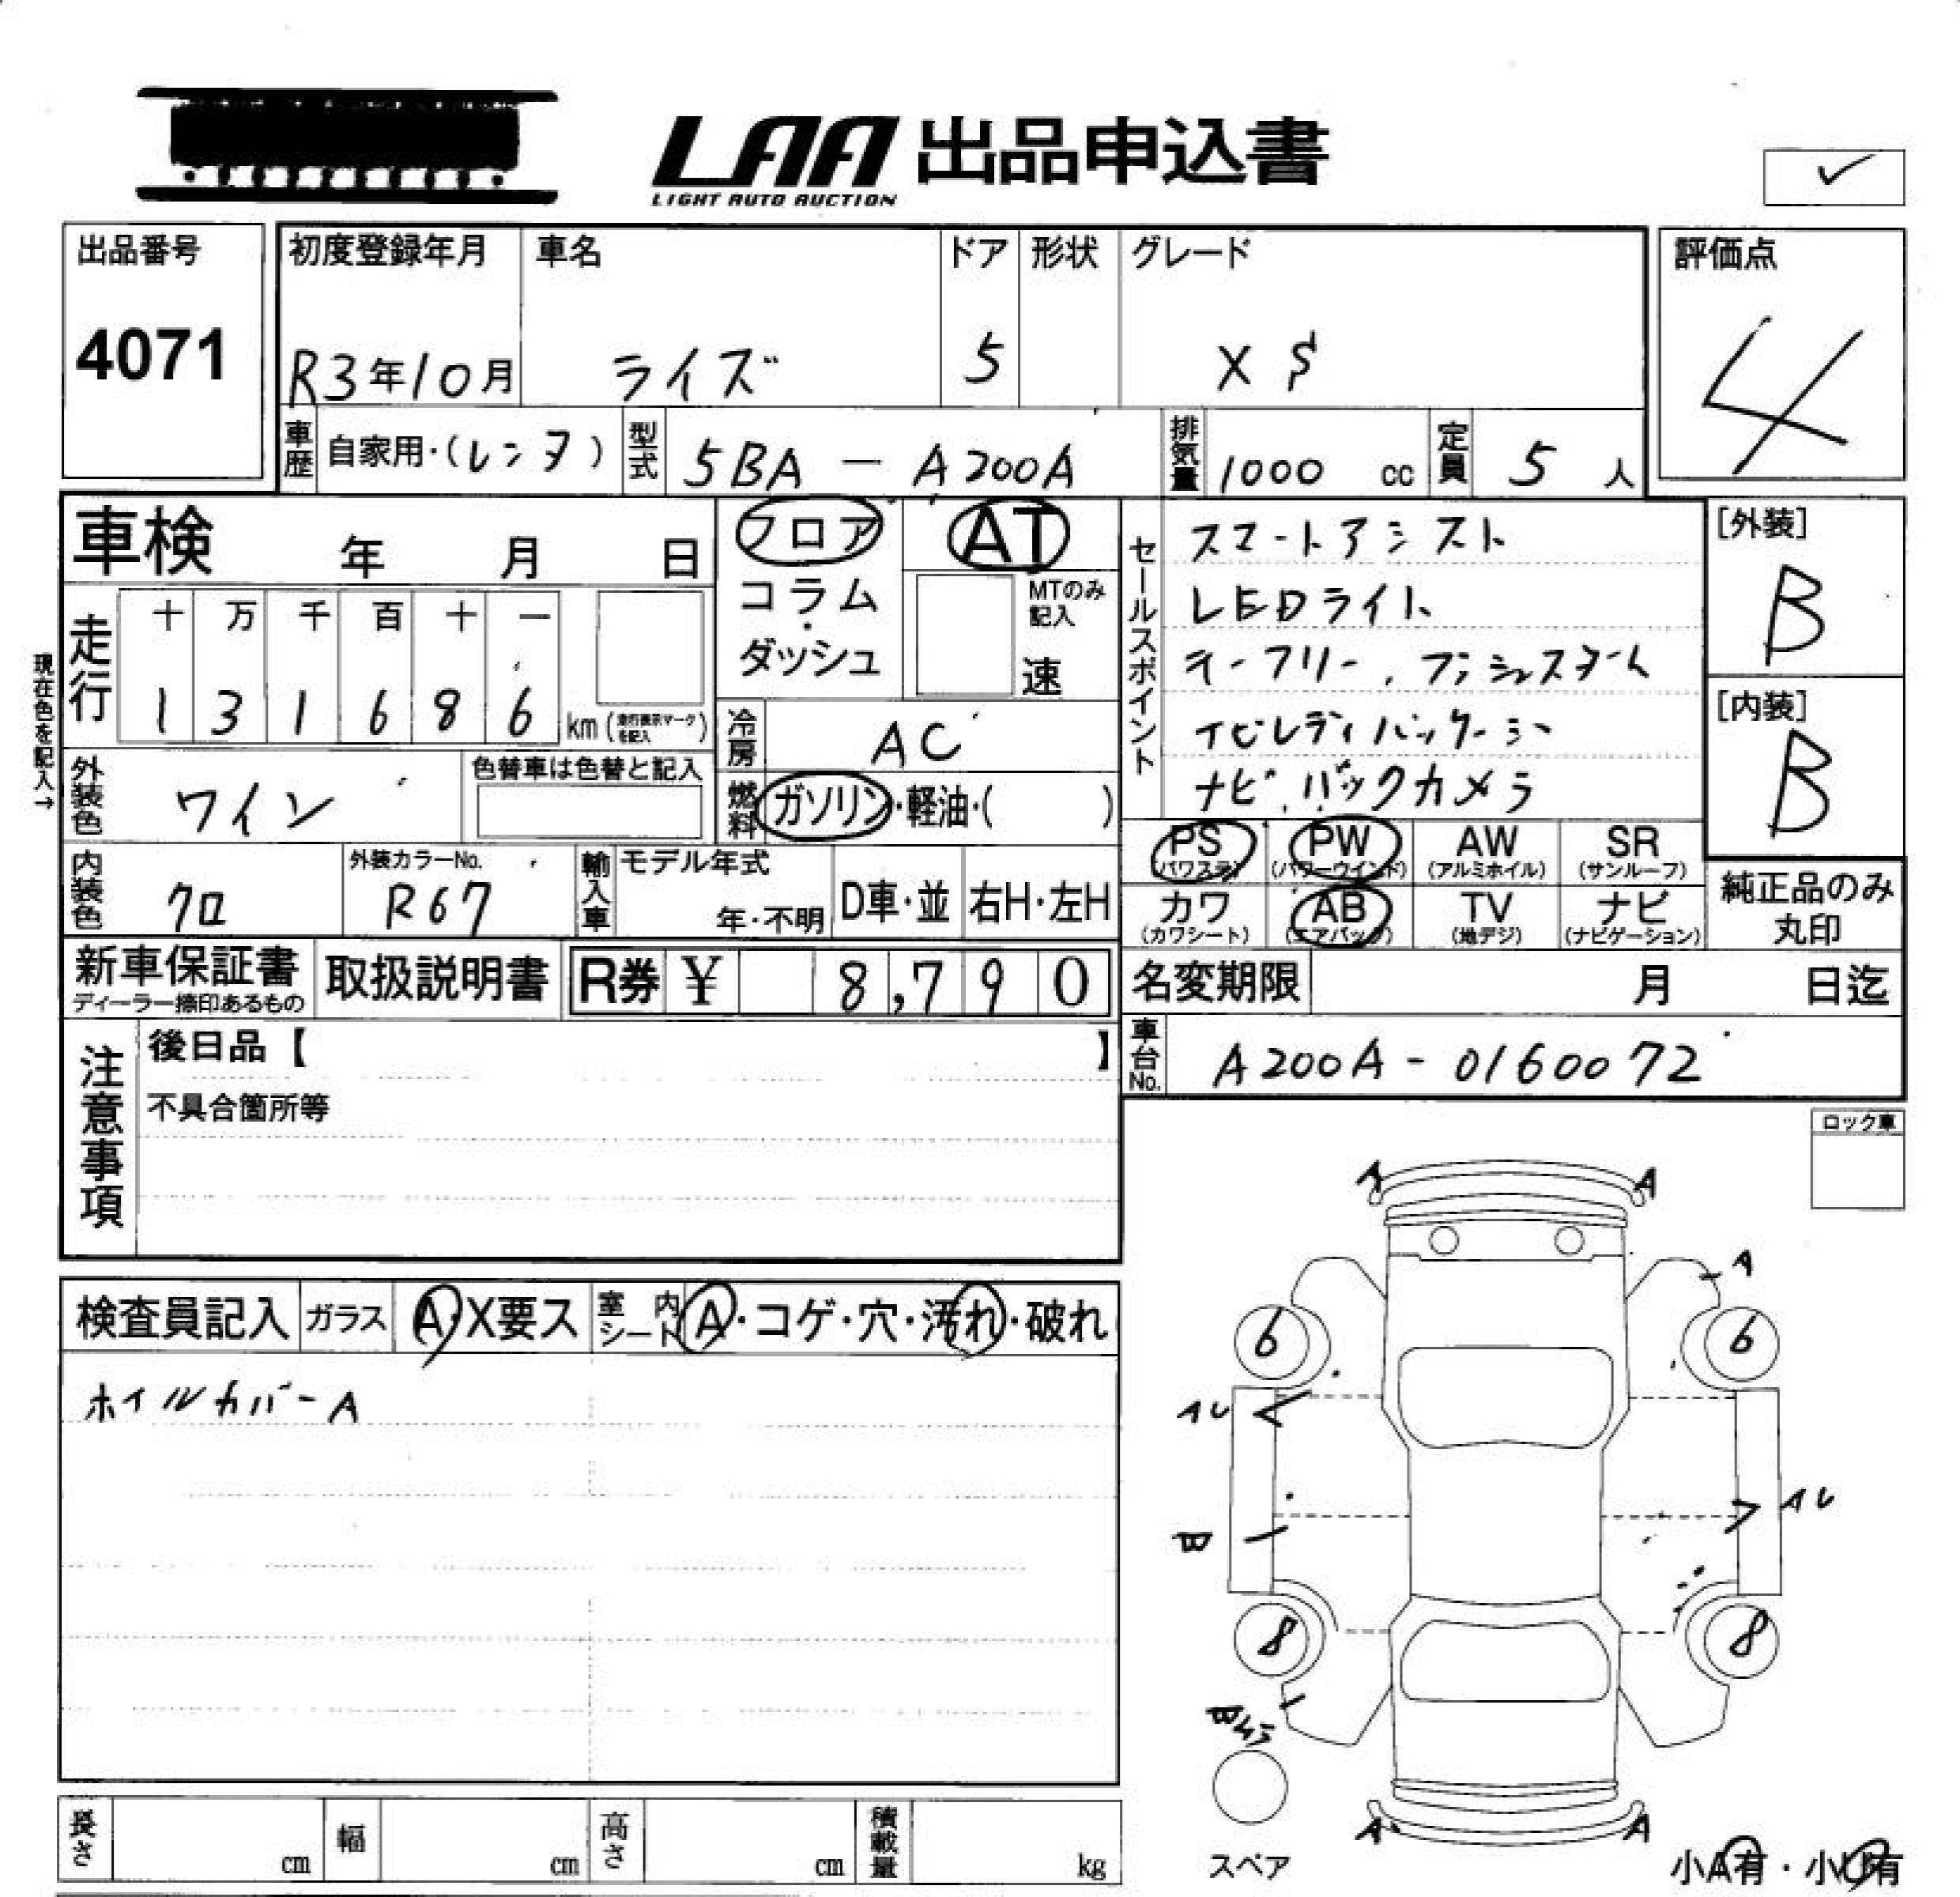 LAA 出品申込書
LIGHT AUTO AUCTION
✓
出品番号
4071
初度登録年月
R3年10月
車名
ライズ
ドア
5
形状
グレード
X S
評価点
4
車歴 自家用・(レンタ)
型式 5BA - A200A
排気量 1000 cc
定員 5 人
車検 年 月 日
フロア
コラム
・
ダッシュ
AT
MTのみ
記入
速
セールスポイント
スマートアシスト
LEDライト
キーフリー、プッシュスタート
ナビレディパッケージ
ナビ、バックカメラ
[外装]
B
[内装]
B
現在色を記入→
走行
十 万 千 百 十 一
1 3 1 6 8 6 km (走行表示マークを記入)
冷房 AC
外装色 ワイン
色替車は色替と記入
燃料 ガソリン・軽油・( )
内装色 クロ
外装カラーNo.
R67
輸入車 モデル年式
年・不明
D車・並
右H・左H
PS
(パワステ)
PW
(パワーウインド)
AW
(アルミホイル)
SR
(サンルーフ)
カワ
(カワシート)
AB
(エアバッグ)
TV
(地デジ)
ナビ
(ナビゲーション)
純正品のみ
丸印
新車保証書
ディーラー捺印あるもの
取扱説明書
R券 ¥ 8,790
名変期限 月 日迄
車台No. A200A - 0160072
注意事項
後日品【 】
不具合箇所等
ロック車
検査員記入 ガラス A・X要ス 室内シート A・コゲ・穴・汚れ・破れ
ホイルカバーA
A A
A
6 6
AU
AU
B
8 8
A A
スペア
小A有・小U有
長さ cm 幅 cm 高さ cm 積載量 kg